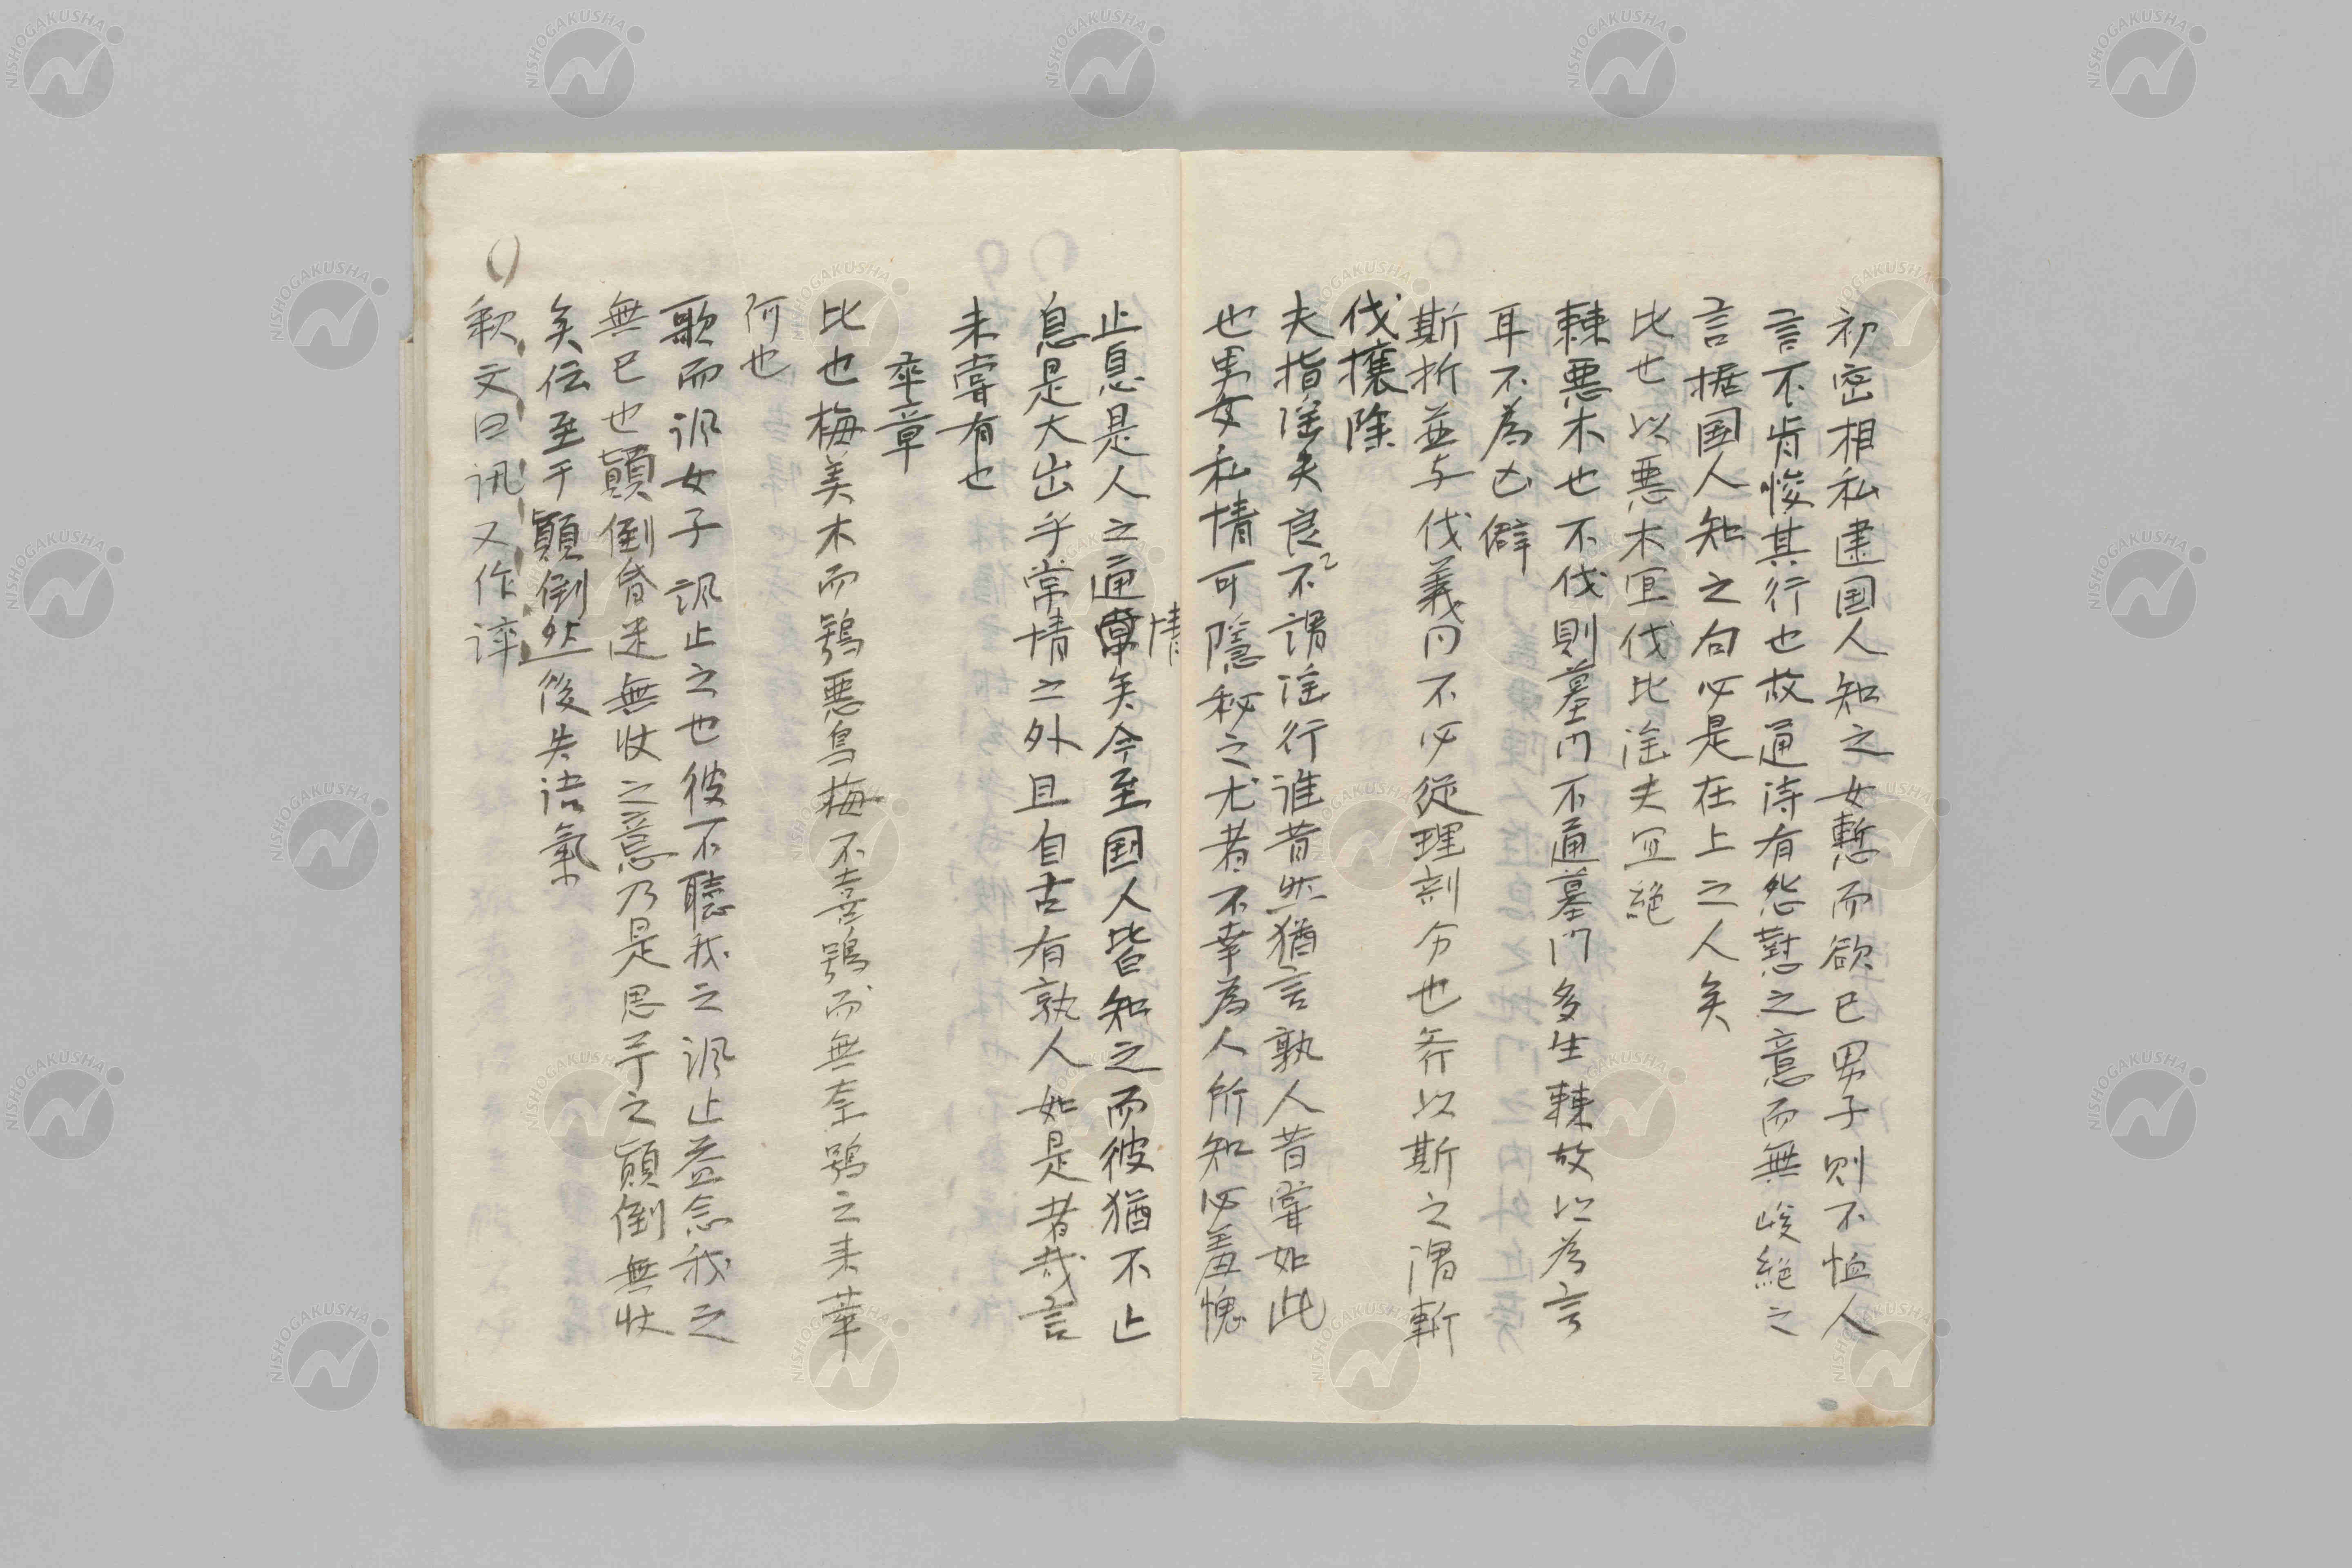 初密相私逮国人知之女慙而欲已男子則不恤人
言不肯悛其行也故通詩有怨懟之意而無峻絶之
言据国人知之句必是在上之人矣
比也以悪木宜伐比淫夫宜絶
棘悪木也不伐則墓門不通墓門多生棘故以為言
耳不為凶僻
斯折並与伐義同不必従理剖分也斧以斯之謂斬
伐攘除
夫指淫夫良不謂淫行誰昔然猶言孰人昔嘗如此
也男女私情可隠秘之尤者不幸為人所知必羞愧
止息是人之通常情矣今至国人皆知之而彼猶不止
息是大出乎常情之外且自古有孰人如是者哉言
未嘗有也
卒章
比也梅美木而鴞悪鳥梅不喜鴞而無奈鴞之来萃
何也
歌而諷女子諷止之也彼不聴我之諷止益念我之
無已也顛倒昏迷無状之意乃是思予之顛倒無状
矣伝至于顛倒然後失語氣
釈文曰訊又作誶
NISHOGAKUSHA